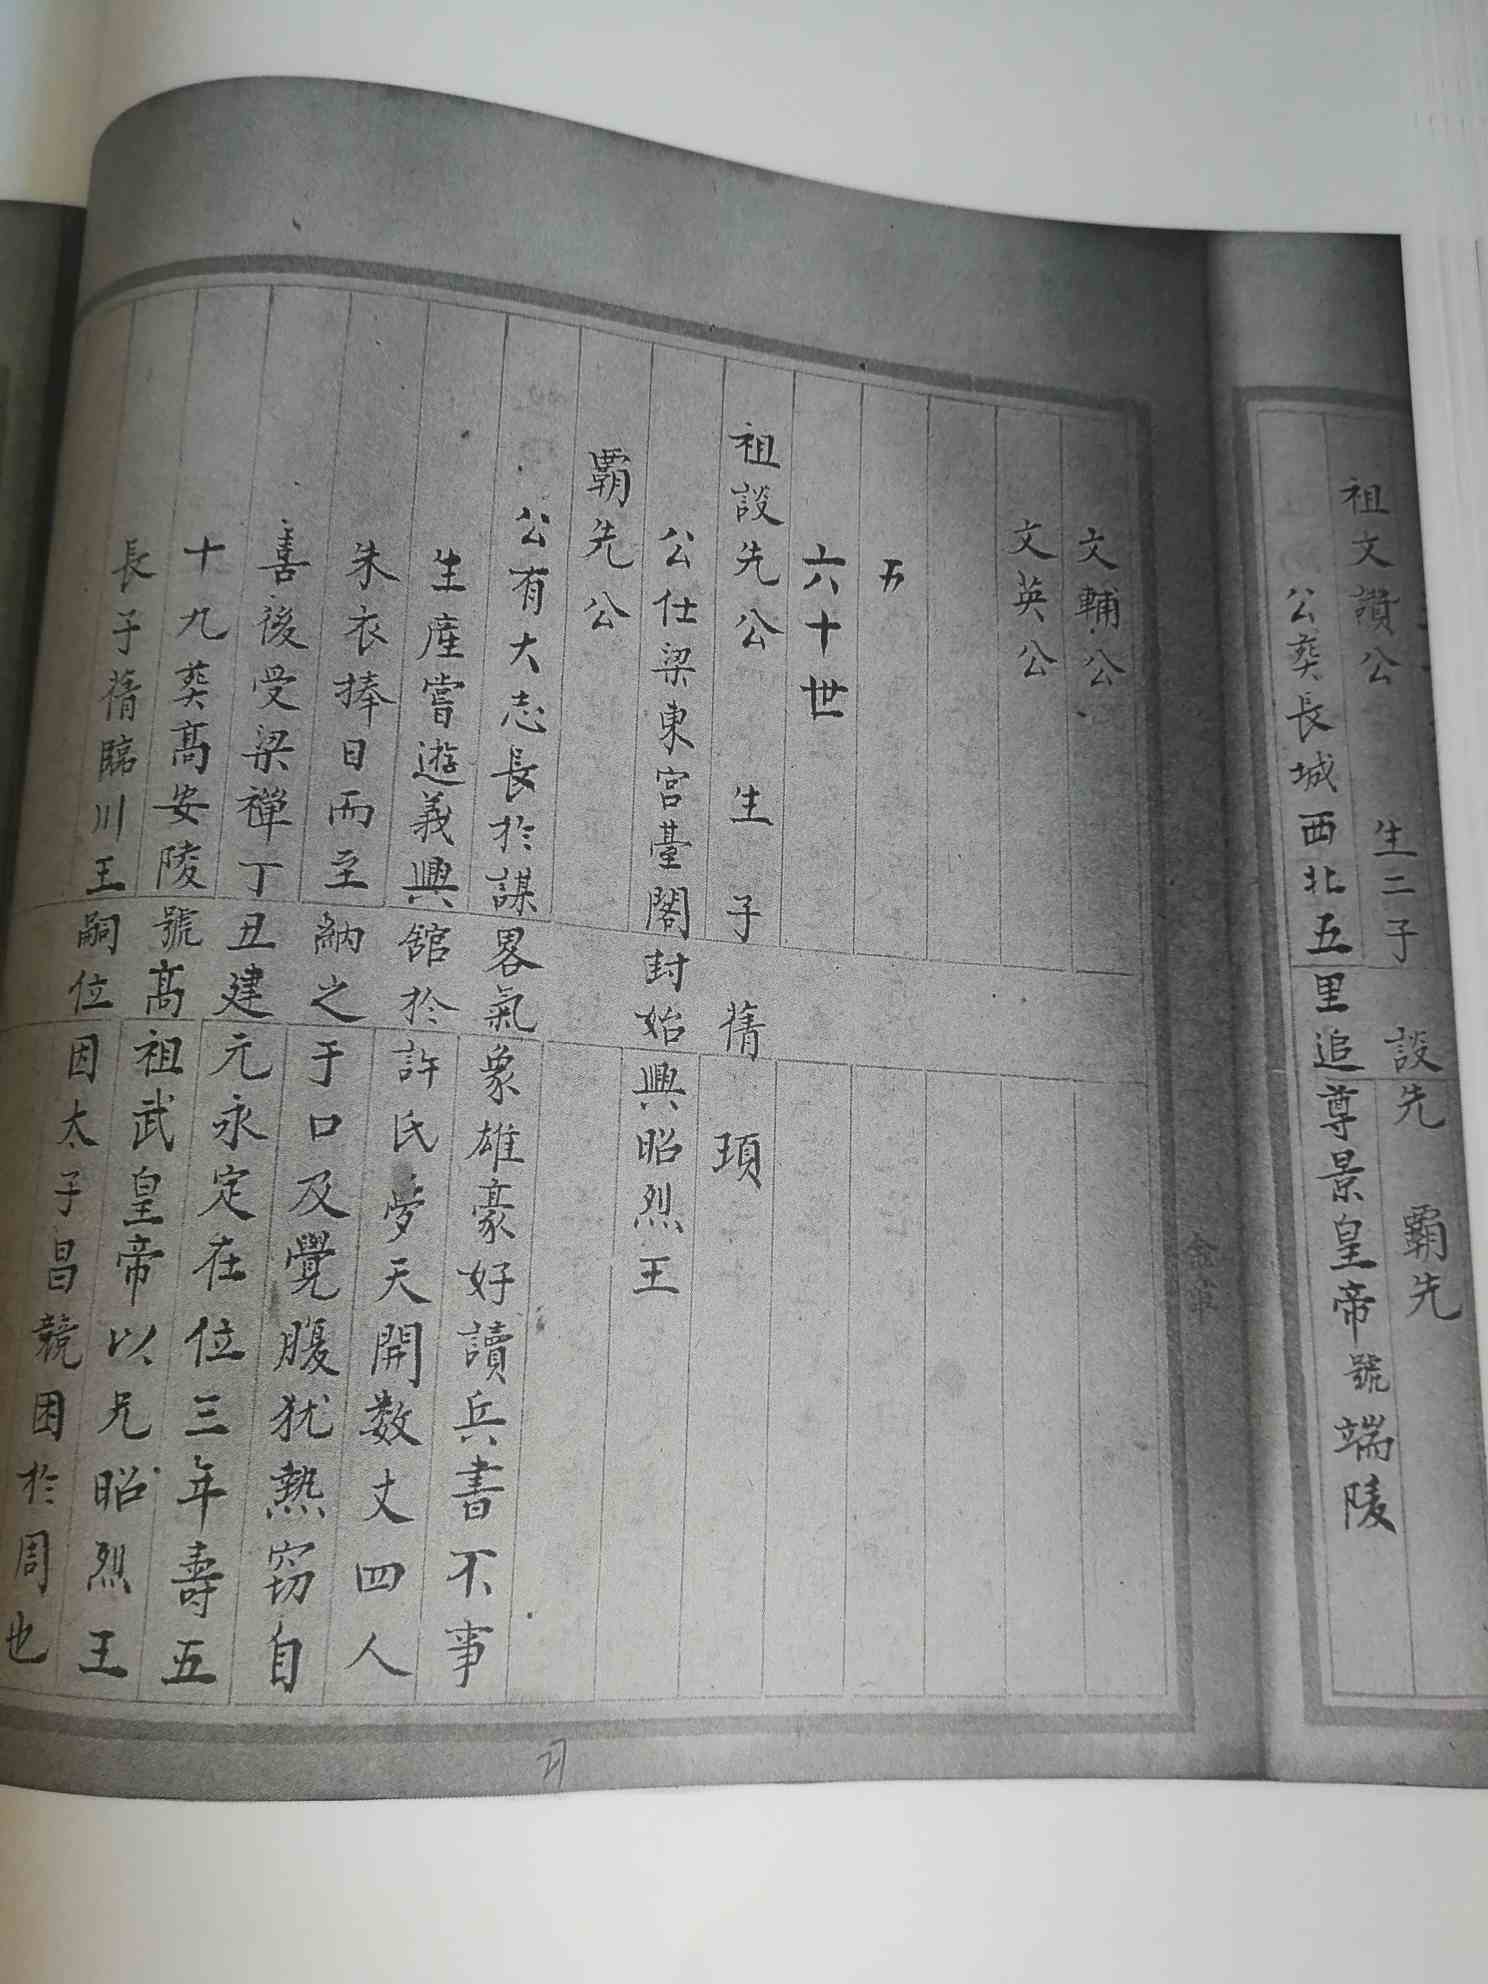 祖文讚公 生二子 設先 霸先
公葬長城西北五里追尊景皇帝號端陵
文輔公
文英公
五
六十世
祖設先公 生子 蒨 頊
公仕梁東宮臺閣封始興昭烈王
霸先公
公有大志長於謀畧氣象雄豪好讀兵書不事
生產嘗遊義興舘於許氏夢天開数丈四人
朱衣捧日而至納之于口及覺腹犹熱窃自
喜後受梁禪丁丑建元永定在位三年壽五
十九葬髙安陵號髙祖武皇帝以兄昭烈王
長子蒨臨川王嗣位因太子昌競困於周也